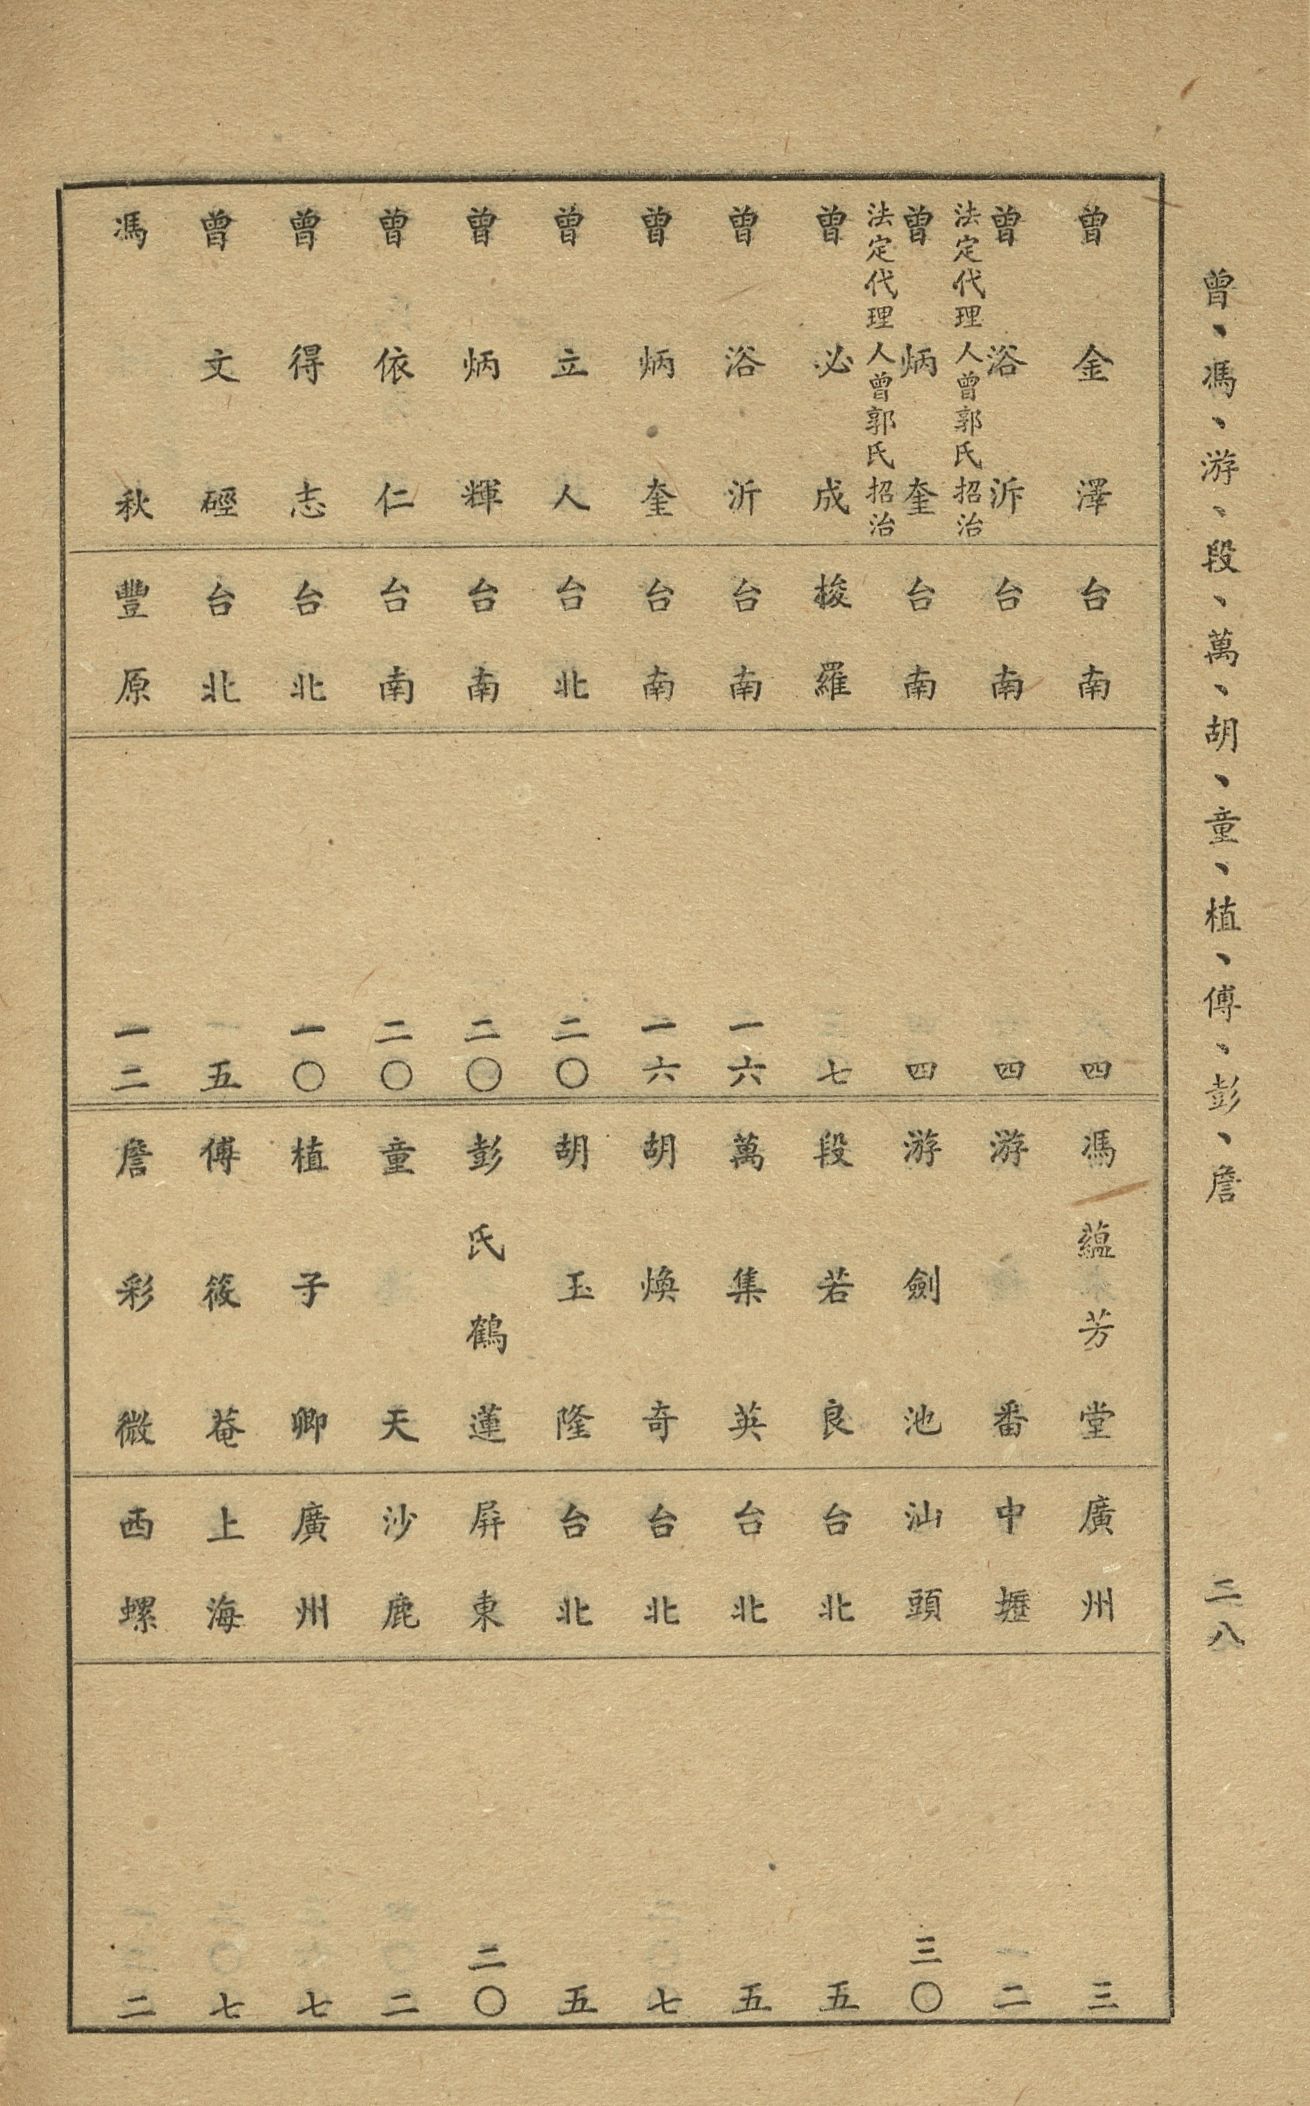 曾、馮、游、段、萬、胡、童、植、傅、彭、詹
三八
曾金澤 台南 四
曾浴沂 法定代理人曾郭氏招治 台南 四
曾炳奎 法定代理人曾郭氏招治 台南 四
曾必成 梭羅 七
曾浴沂 台南 一六
曾炳奎 台南 一六
曾立人 台北 二〇
曾炳輝 台南 二〇
曾依仁 台南 二〇
曾得志 台北 一〇
曾文硜 台北 五
馮秋 豐原 一二
馮蘊芳堂 廣州 三
游番 中壢 二
游劍池 汕頭 三〇
段若良 台北 五
萬集英 台北 五
胡煥奇 台北 七
胡玉隆 台北 五
彭氏鶴蓮 屏東 二〇
童天 沙鹿 二
植子卿 廣州 七
傅筱菴 上海 七
詹彩微 西螺 二